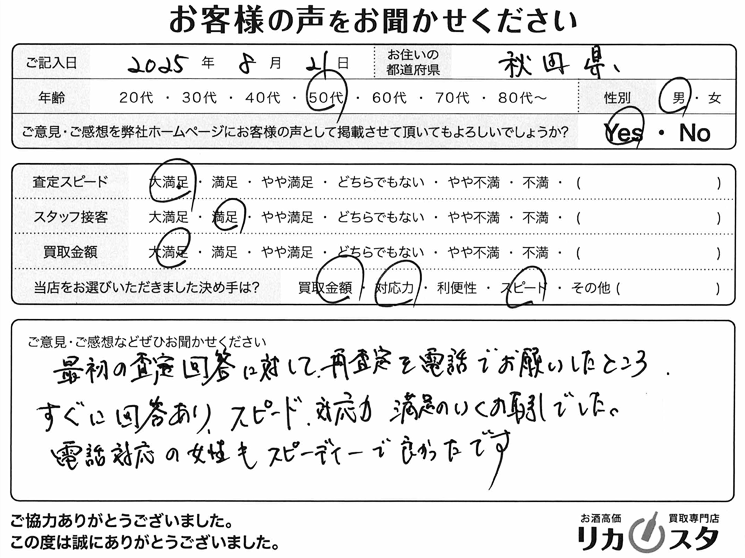 お客様の声をお聞かせください
ご記入日 2025 年 8 月 21 日 お住いの都道府県 秋田県、
年齢 20代 ・ 30代 ・ 40代 ・ 50代 ・ 60代 ・ 70代 ・ 80代～ 性別 男 ・ 女
ご意見・ご感想を弊社ホームページにお客様の声として掲載させて頂いてもよろしいでしょうか? Yes ・ No
査定スピード 大満足 ・ 満足 ・ やや満足 ・ どちらでもない ・ やや不満 ・ 不満 ・ ( )
スタッフ接客 大満足 ・ 満足 ・ やや満足 ・ どちらでもない ・ やや不満 ・ 不満 ・ ( )
買取金額 大満足 ・ 満足 ・ やや満足 ・ どちらでもない ・ やや不満 ・ 不満 ・ ( )
当店をお選びいただきました決め手は? 買取金額 ・ 対応力 ・ 利便性 ・ スピード ・ その他 ( )
ご意見・ご感想などぜひお聞かせください
最初の査定回答に対して、再査定を電話でお願いしたところ、
すぐに回答あり、スピード、対応力 満足のいくお取引でした。
電話対応の女性もスピーディーで良かったです
ご協力ありがとうございました。
この度は誠にありがとうございました。
お酒高価 買取専門店
リカスタ